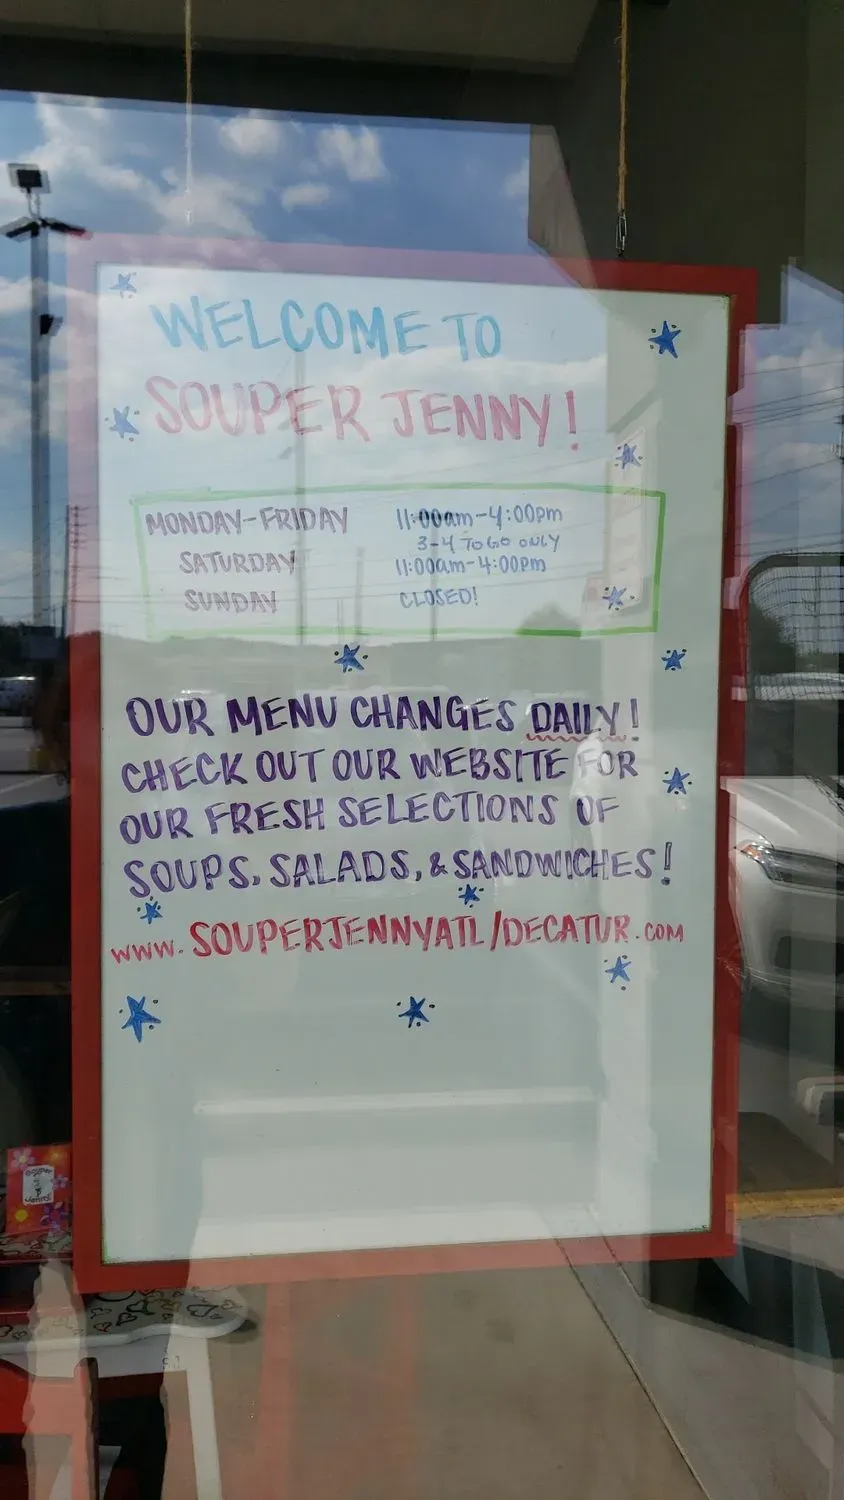 WELCOME TO
SOUPER JENNY!
MONDAY-FRIDAY 11:00am-4:00pm
3-4 TO GO ONLY
SATURDAY 11:00am-4:00pm
SUNDAY CLOSED!
OUR MENU CHANGES DAILY!
CHECK OUT OUR WEBSITE FOR
OUR FRESH SELECTIONS OF
SOUPS, SALADS, & SANDWICHES!
www.SOUPERJENNYATL/DECATUR.COM
Souper
Jenny